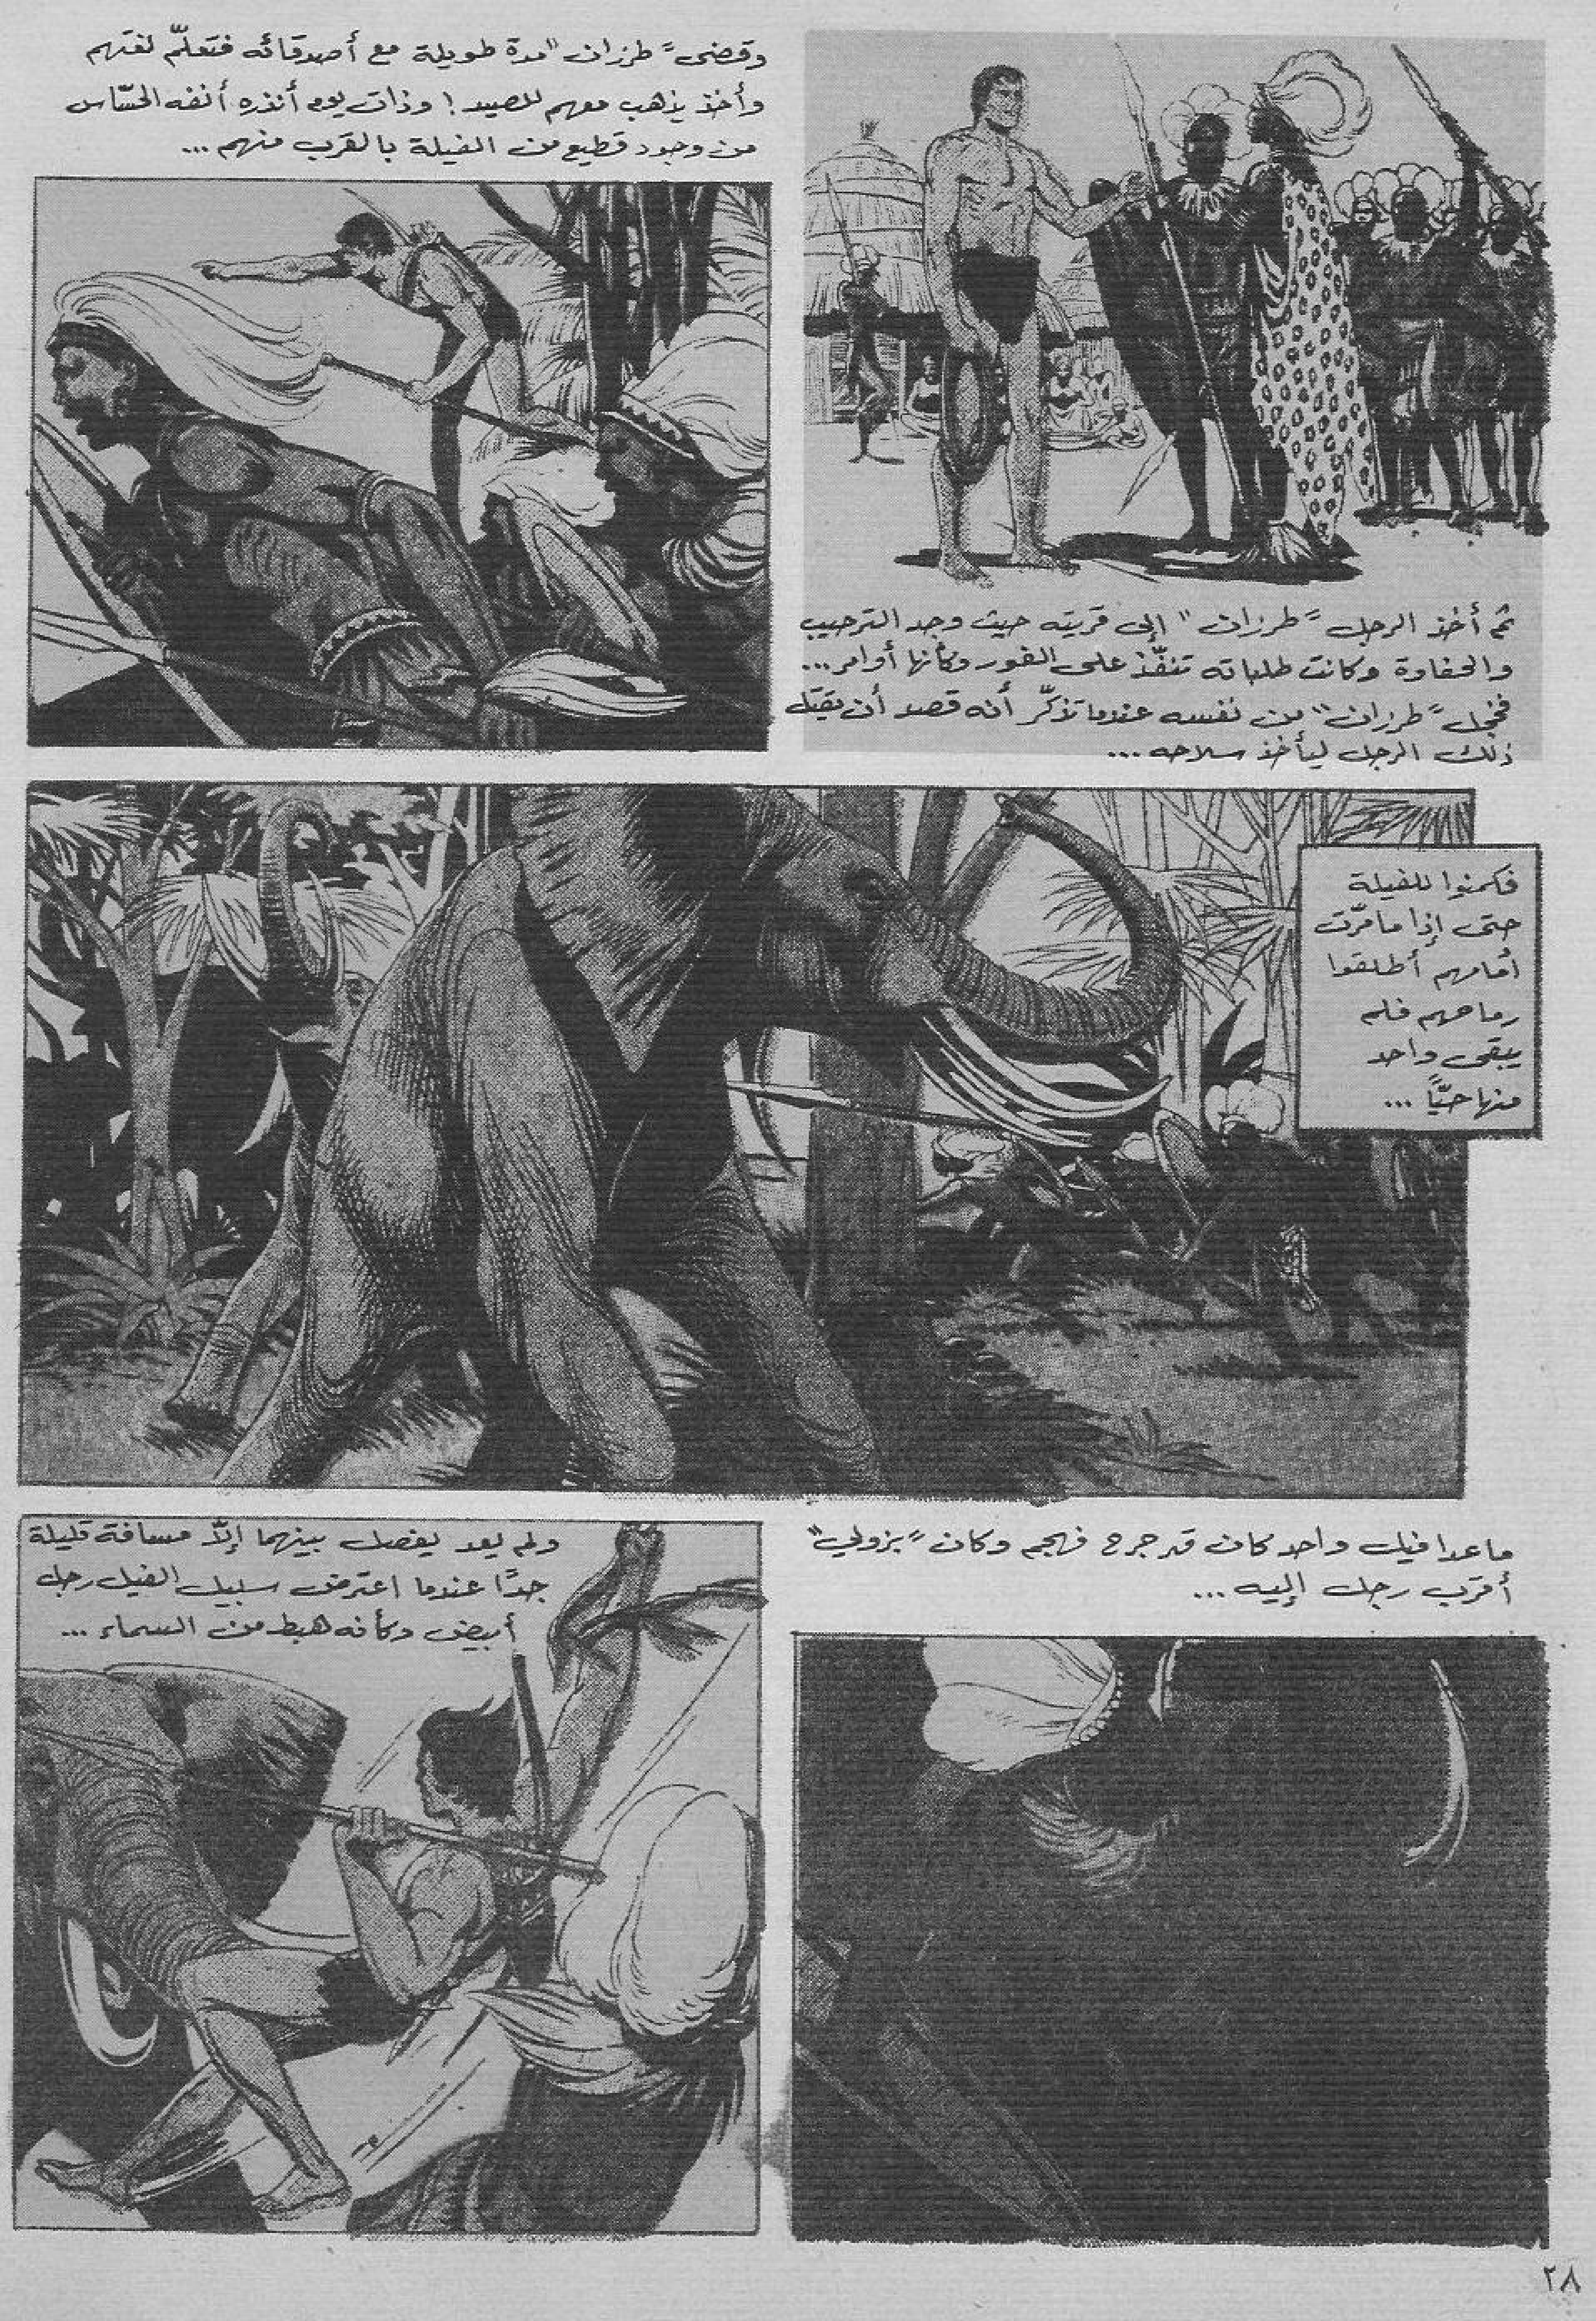 ثم أخذ الرجل "طرزان" إلى قريته حيث وجد الترحيب
والحفاوة وكانت طلباته تنفّذ على الفور وكأنها أوامر...
فخجل "طرزان" من نفسه عندما تذكّر أنه قصد أن يقتل
ذلك الرجل ليأخذ سلاحه...
وقضى "طرزان" مدة طويلة مع أصدقائه فتعلّم لغتهم
وأخذ يذهب معهم للصيد! وذات يوم أنذره أنفه الحسّاس
من وجود قطيع من الفيلة بالقرب منهم...
فكمنوا للفيلة
حتى إذا ما مرّت
أمامهم أطلقوا
رماحهم فلم
يبقى واحد
منها حيًّا...
ما عدا فيل واحد كان قد جرح فهجم وكان "بزولي"
أقرب رجل إليه...
ولم يعد يفصل بينهما إلّا مسافة قليلة
جدًا عندما اعترض سبيل الفيل رجل
أبيض وكأنه هبط من السماء...
٢٨